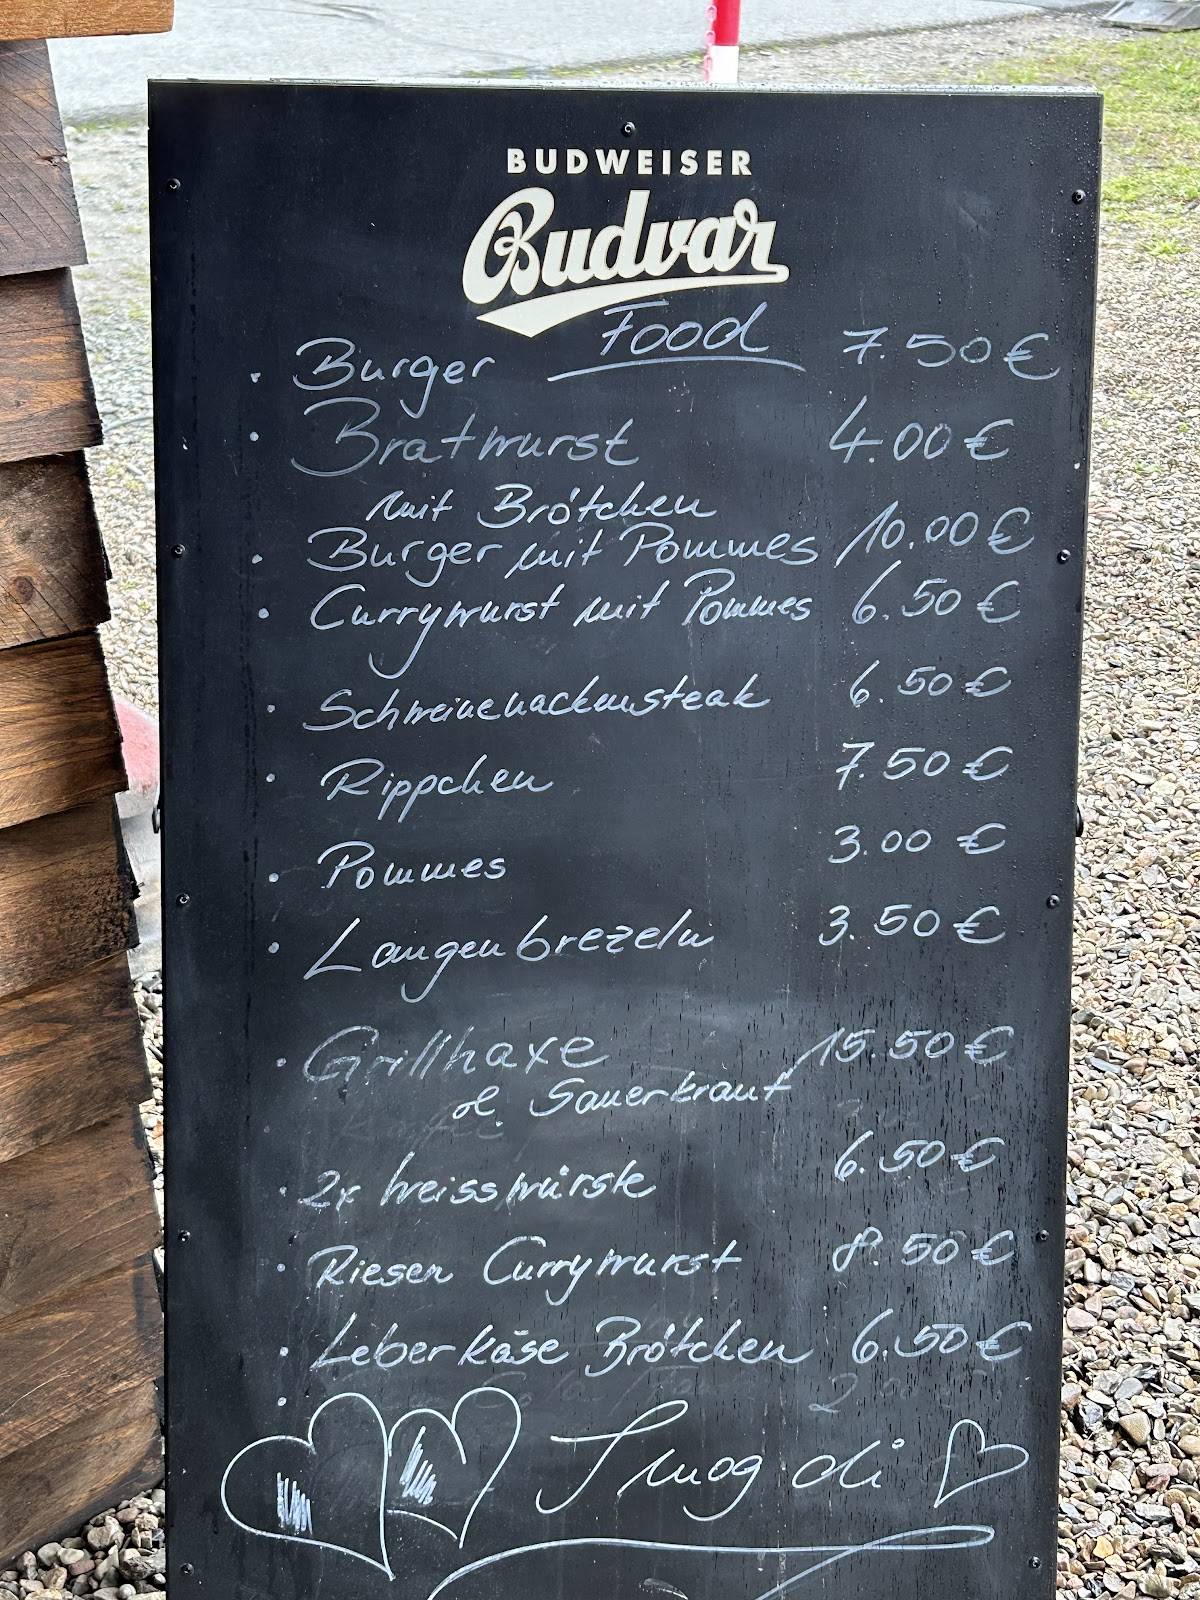 BUDWEISER
Budvar
Food
· Burger 7.50€
· Bratwurst 4.00€
mit Brötchen
· Burger mit Pommes 10.00€
· Currywurst mit Pommes 6.50€
· Schweinenackensteak 6.50€
· Rippchen 7.50€
· Pommes 3.00€
· Laugenbrezeln 3.50€
· Grillhaxe 15.50€
Sauerkraut
· 2x Weisswürste 6.50€
· Riesen Currywurst 8.50€
· Leberkäse Brötchen 6.50€
I mog di